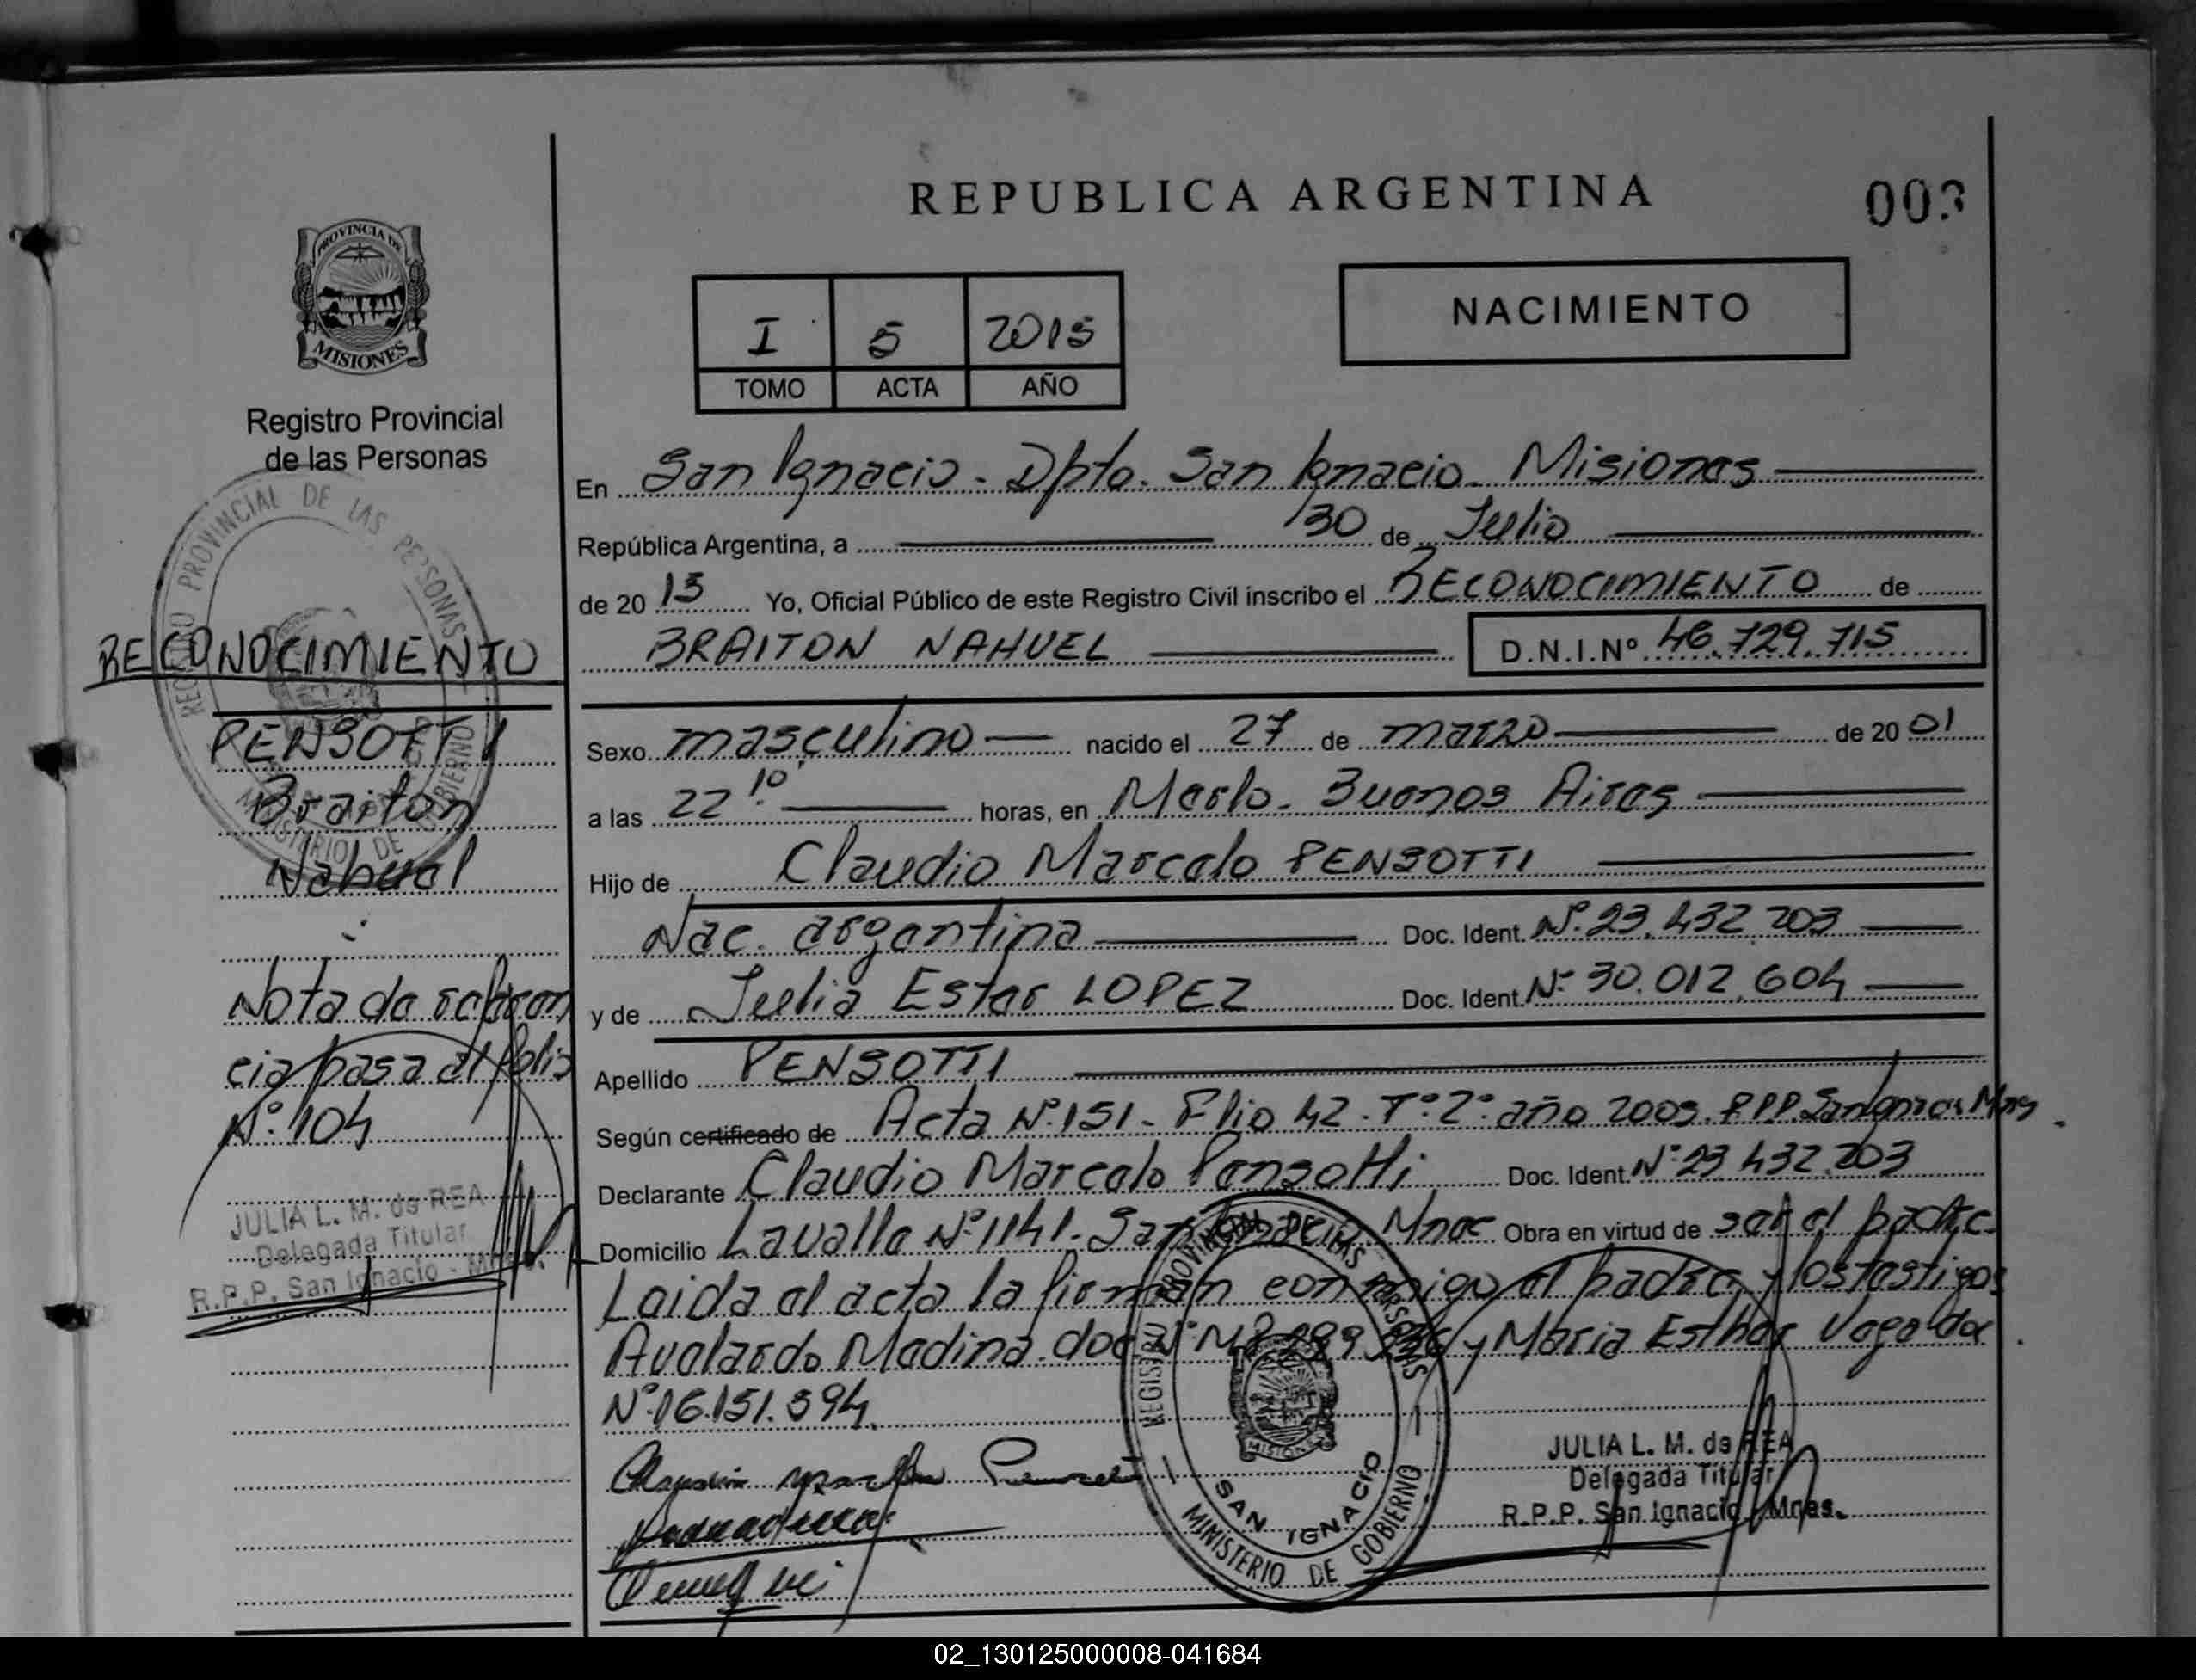 REPUBLICA ARGENTINA
003
PROVINCIA DE
MISIONES
Registro Provincial
de las Personas
I 5 2015
TOMO ACTA AÑO
NACIMIENTO
En San Ignacio - Dpto. San Ignacio - Misiones
República Argentina, a 30 de Julio
de 20 15 Yo, Oficial Público de este Registro Civil inscribo el RECONOCIMIENTO de
BRAITON NAHUEL D.N.I.Nº 46.729.715
Sexo masculino nacido el 27 de marzo de 20 01
a las 22.10 horas, en Merlo - Buenos Aires
Hijo de Claudio Marcelo PENSOTTI
Nac. argentina Doc. Ident. Nº 23.432.203
y de Julia Ester LOPEZ Doc. Ident. Nº 30.012.604
Apellido PENSOTTI
Según certificado de Acta Nº 151 - Flio 42 - Tº 2º año 2005. R.P.P. San Ignacio Mns
Declarante Claudio Marcelo Pensotti Doc. Ident. Nº 23.432.203
Domicilio Lavalle Nº 1141 - San Ignacio Mnes Obra en virtud de ser el padre.
Leida el acta la firman conmigo el padre y los testigos
Avelardo Medina. doc Nº M8.289. y Maria Esther Vega doc
Nº 06.151.594.
RECONOCIMIENTO
PENSOTTI
Braiton
Nahuel
Nota de referen
cia pasa al folio
Nº 104
JULIA L. M. de REA
Delegada Titular
R.P.P. San Ignacio - Mnes.
REGISTRO PROVINCIAL DE LAS PERSONAS
MINISTERIO DE GOBIERNO
REGISTRO PROVINCIAL DE LAS PERSONAS
MISIONES
SAN IGNACIO
MINISTERIO DE GOBIERNO
JULIA L. M. de REA
Delegada Titular
R.P.P. San Ignacio - Mnes.
02_130125000008-041684